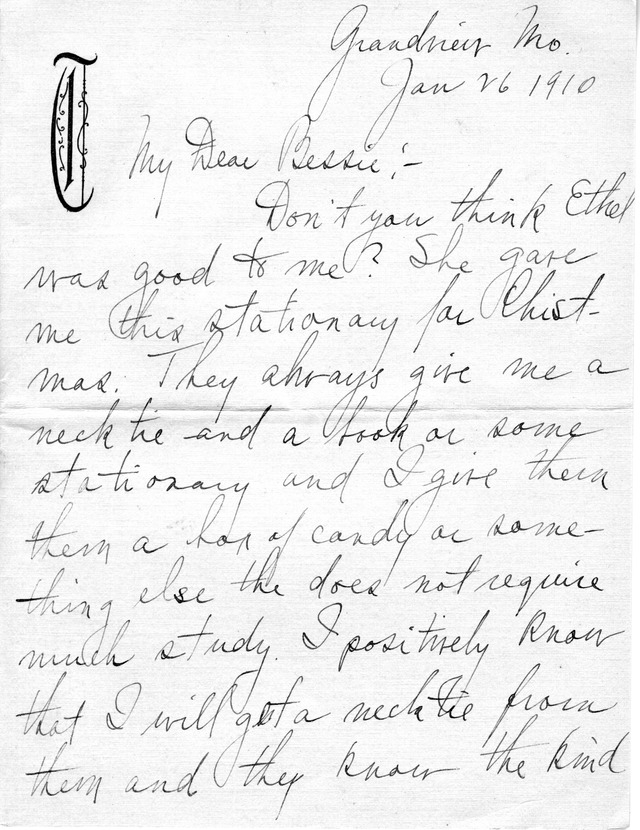 Grandview Mo.
Jan 26 1910
T
My Dear Bessie:-
Don't you think Ethel
was good to me? She gave
me this stationary for Chist-
mas. They always give me a
neck tie and a book or some
stationary and I give them
them a box of candy or some-
thing else the does not require
much study. I positively know
that I will get a neck tie from
them and they know the kind